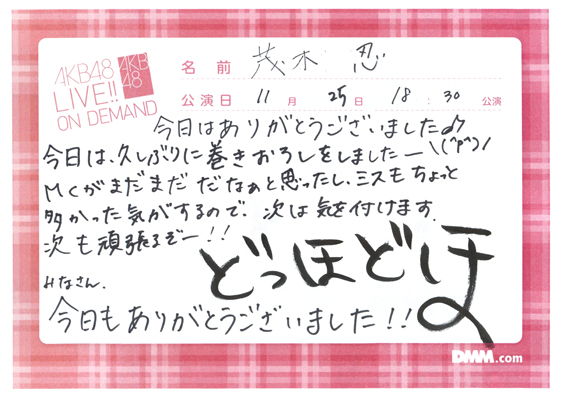 AKB48
LIVE!!
ON DEMAND
AKB
48
名前 茂木 忍
公演日 11月 25日 18:30 公演
今日はありがとうございました♪
今日は、久しぶりに巻きおろしをしましたー\(^p^)/
MCがまだまだ だなぁと思ったし、ミスもちょっと
多かった気がするので、次は気を付けます.
次も頑張るぞー!!
どっほどほ
みなさん、
今日もありがとうございました!!
DMM.com